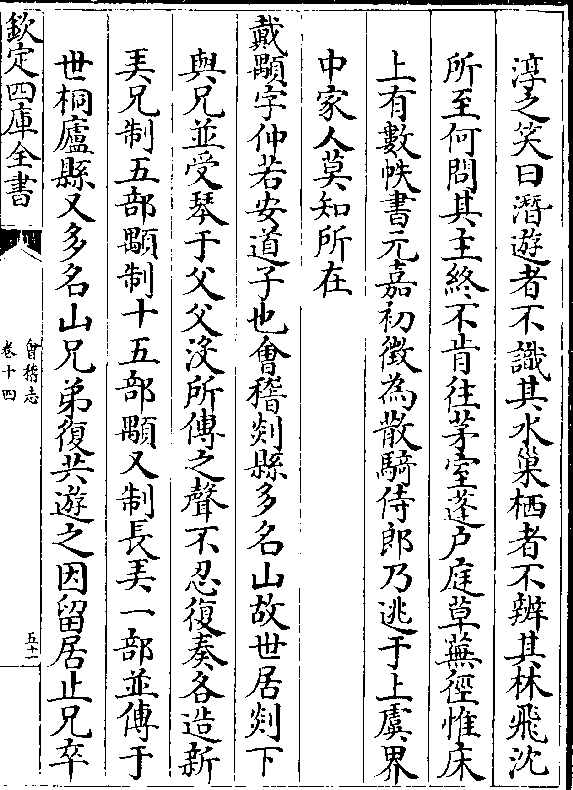 淳之笑曰潛遊者不識其水巢栖者不辨其林飛沈
所至何問其主終不肯往茅室蓬户庭草蕪徑惟床
上有數帙書元嘉初徵為散騎侍郎乃逃于上虞界
中家人莫知所在
戴顒字仲若安道子也會稽剡縣多名山故世居剡下
與兄並受琴于父父沒所傳之聲不忍復奏各造新
弄兄制五部顒制十五部顒又制長弄一部並傳于
世桐廬縣又多名山兄弟復共遊之因留居止兄卒
欽定四庫全書
會稽志
卷十四
五十一